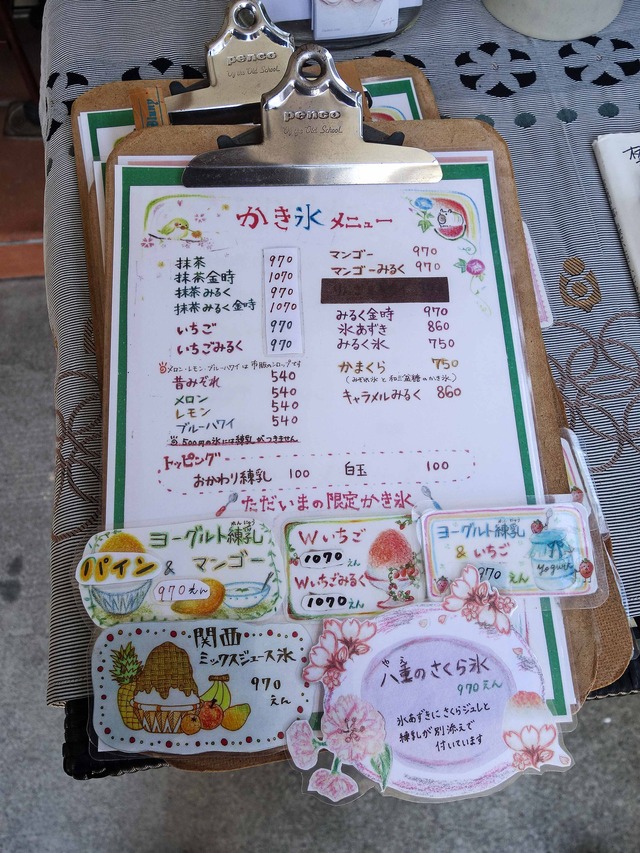 penco
By the Old School
penco
By the Old School
かき氷 メニュー
抹茶 970
抹茶金時 1070
抹茶みるく 970
抹茶みるく金時 1070
いちご 970
いちごみるく 970
メロン・レモン・ブルーハワイは市販のシロップです
昔みぞれ 540
メロン 540
レモン 540
ブルーハワイ 540
500円の氷には練乳がつきません
マンゴー 970
マンゴーみるく 970
みるく金時 970
氷あずき 860
みるく氷 750
かまくら 750
(みぞれ氷と和三盆糖のかき氷)
キャラメルみるく 860
トッピング
おかわり練乳 100 白玉 100
ただいまの限定かき氷
ヨーグルト練乳
れんにゅう
パイン & マンゴー
970えん
Wいちご
1070えん
Wいちごみるく
1070えん
ヨーグルト練乳
れんにゅう
& いちご
970えん
Yogurt
関西
ミックスジュース氷
970
えん
八重のさくら氷
やえ
970えん
氷あずきにさくらジュレと
練乳が別添えで
付いています